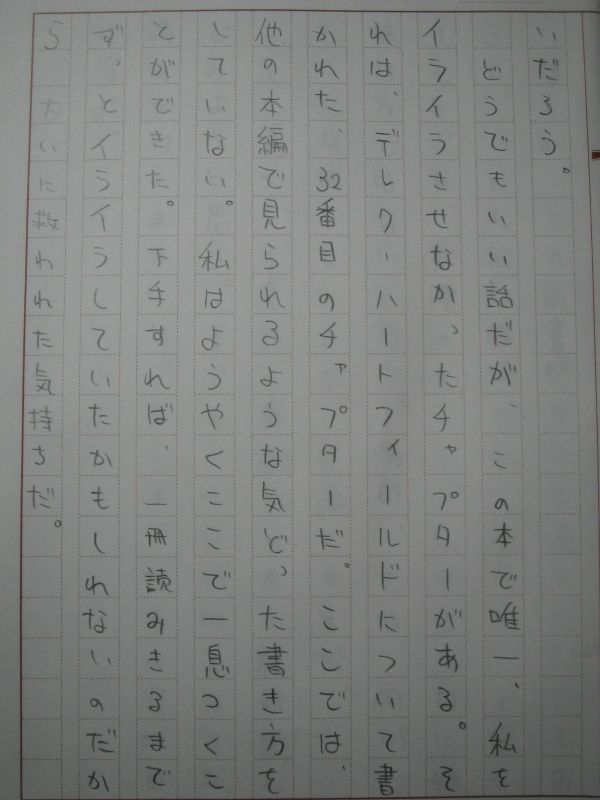 いだろう。
どうでもいい話だが、この本で唯一、私を
イライラさせなかったチャプターがある。そ
れは、デレク・ハートフィールドについて書
かれた、32番目のチャプターだ。ここでは、
他の本編で見られるような気どった書き方を
していない。私はようやくここで一息つくこ
とができた。下手すれば、一冊読みきるまで
ず、とイライラしていたかもしれないのだか
ら、たいに救われた気持ちだ。